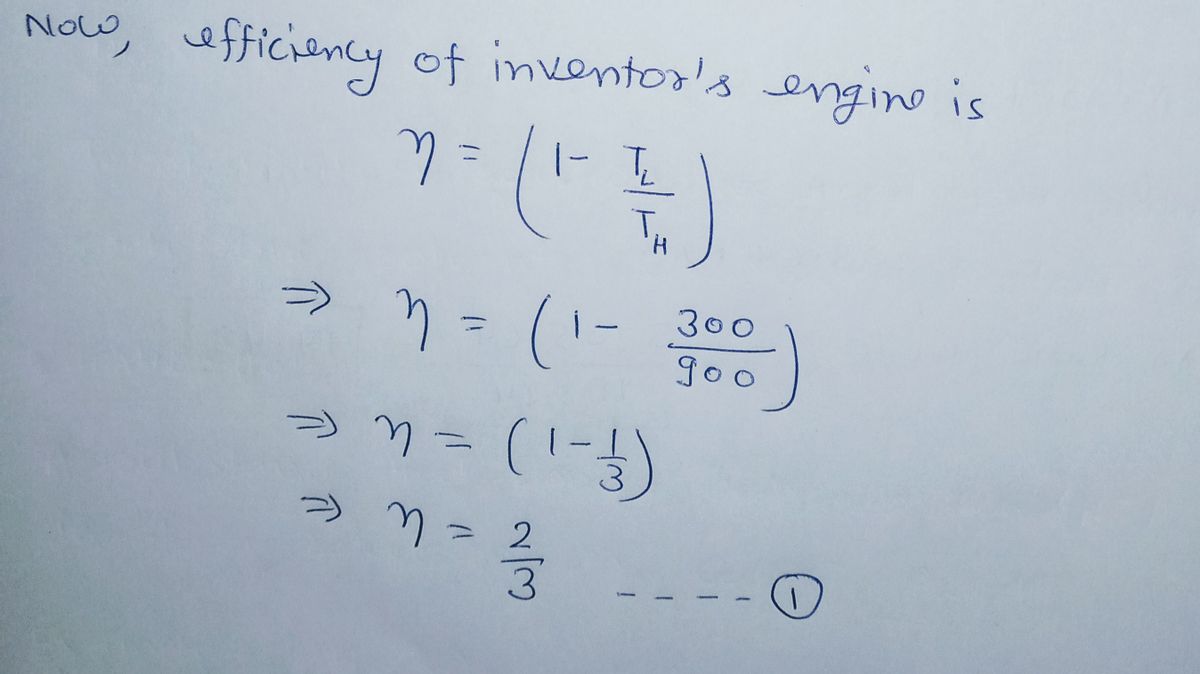 Now, efficiency of inventor's engine is
η = (1 - T_L / T_H)
⇒ η = (1 - 300 / 900)
⇒ η = (1 - 1/3)
⇒ η = 2/3 ---- ①